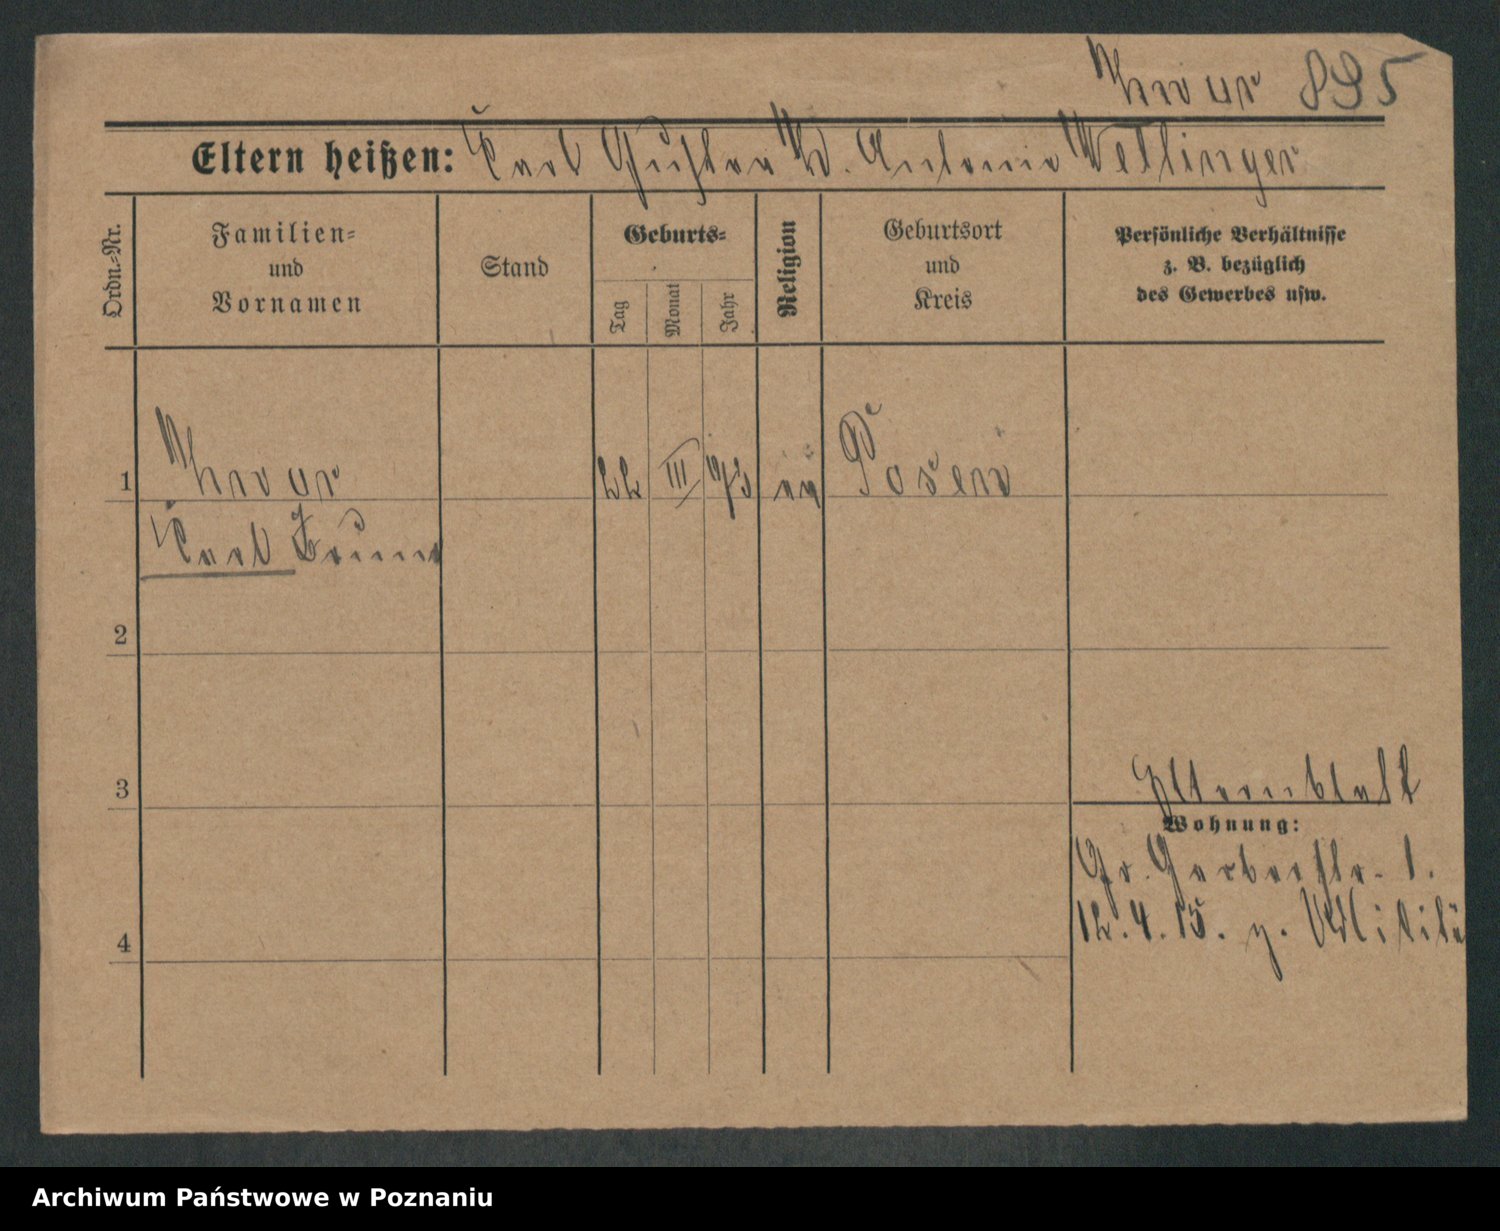 895
Eltern heißen: Carl Gustav u. Antonie Wettinger
Ordn.-Nr.
Familien-
und
Vornamen
Stand
Geburts-
Tag
Monat
Jahr
Religion
Geburtsort
und
Kreis
Persönliche Verhältnisse
z. B. bezüglich
des Gewerbes usw.
1
22 III ev Posen
Carl Bruno
2
3
Elternblatt
Wohnung:
Gr. Gerberstr. 1.
4
12.4.15. z. Militä
Archiwum Państwowe w Poznaniu